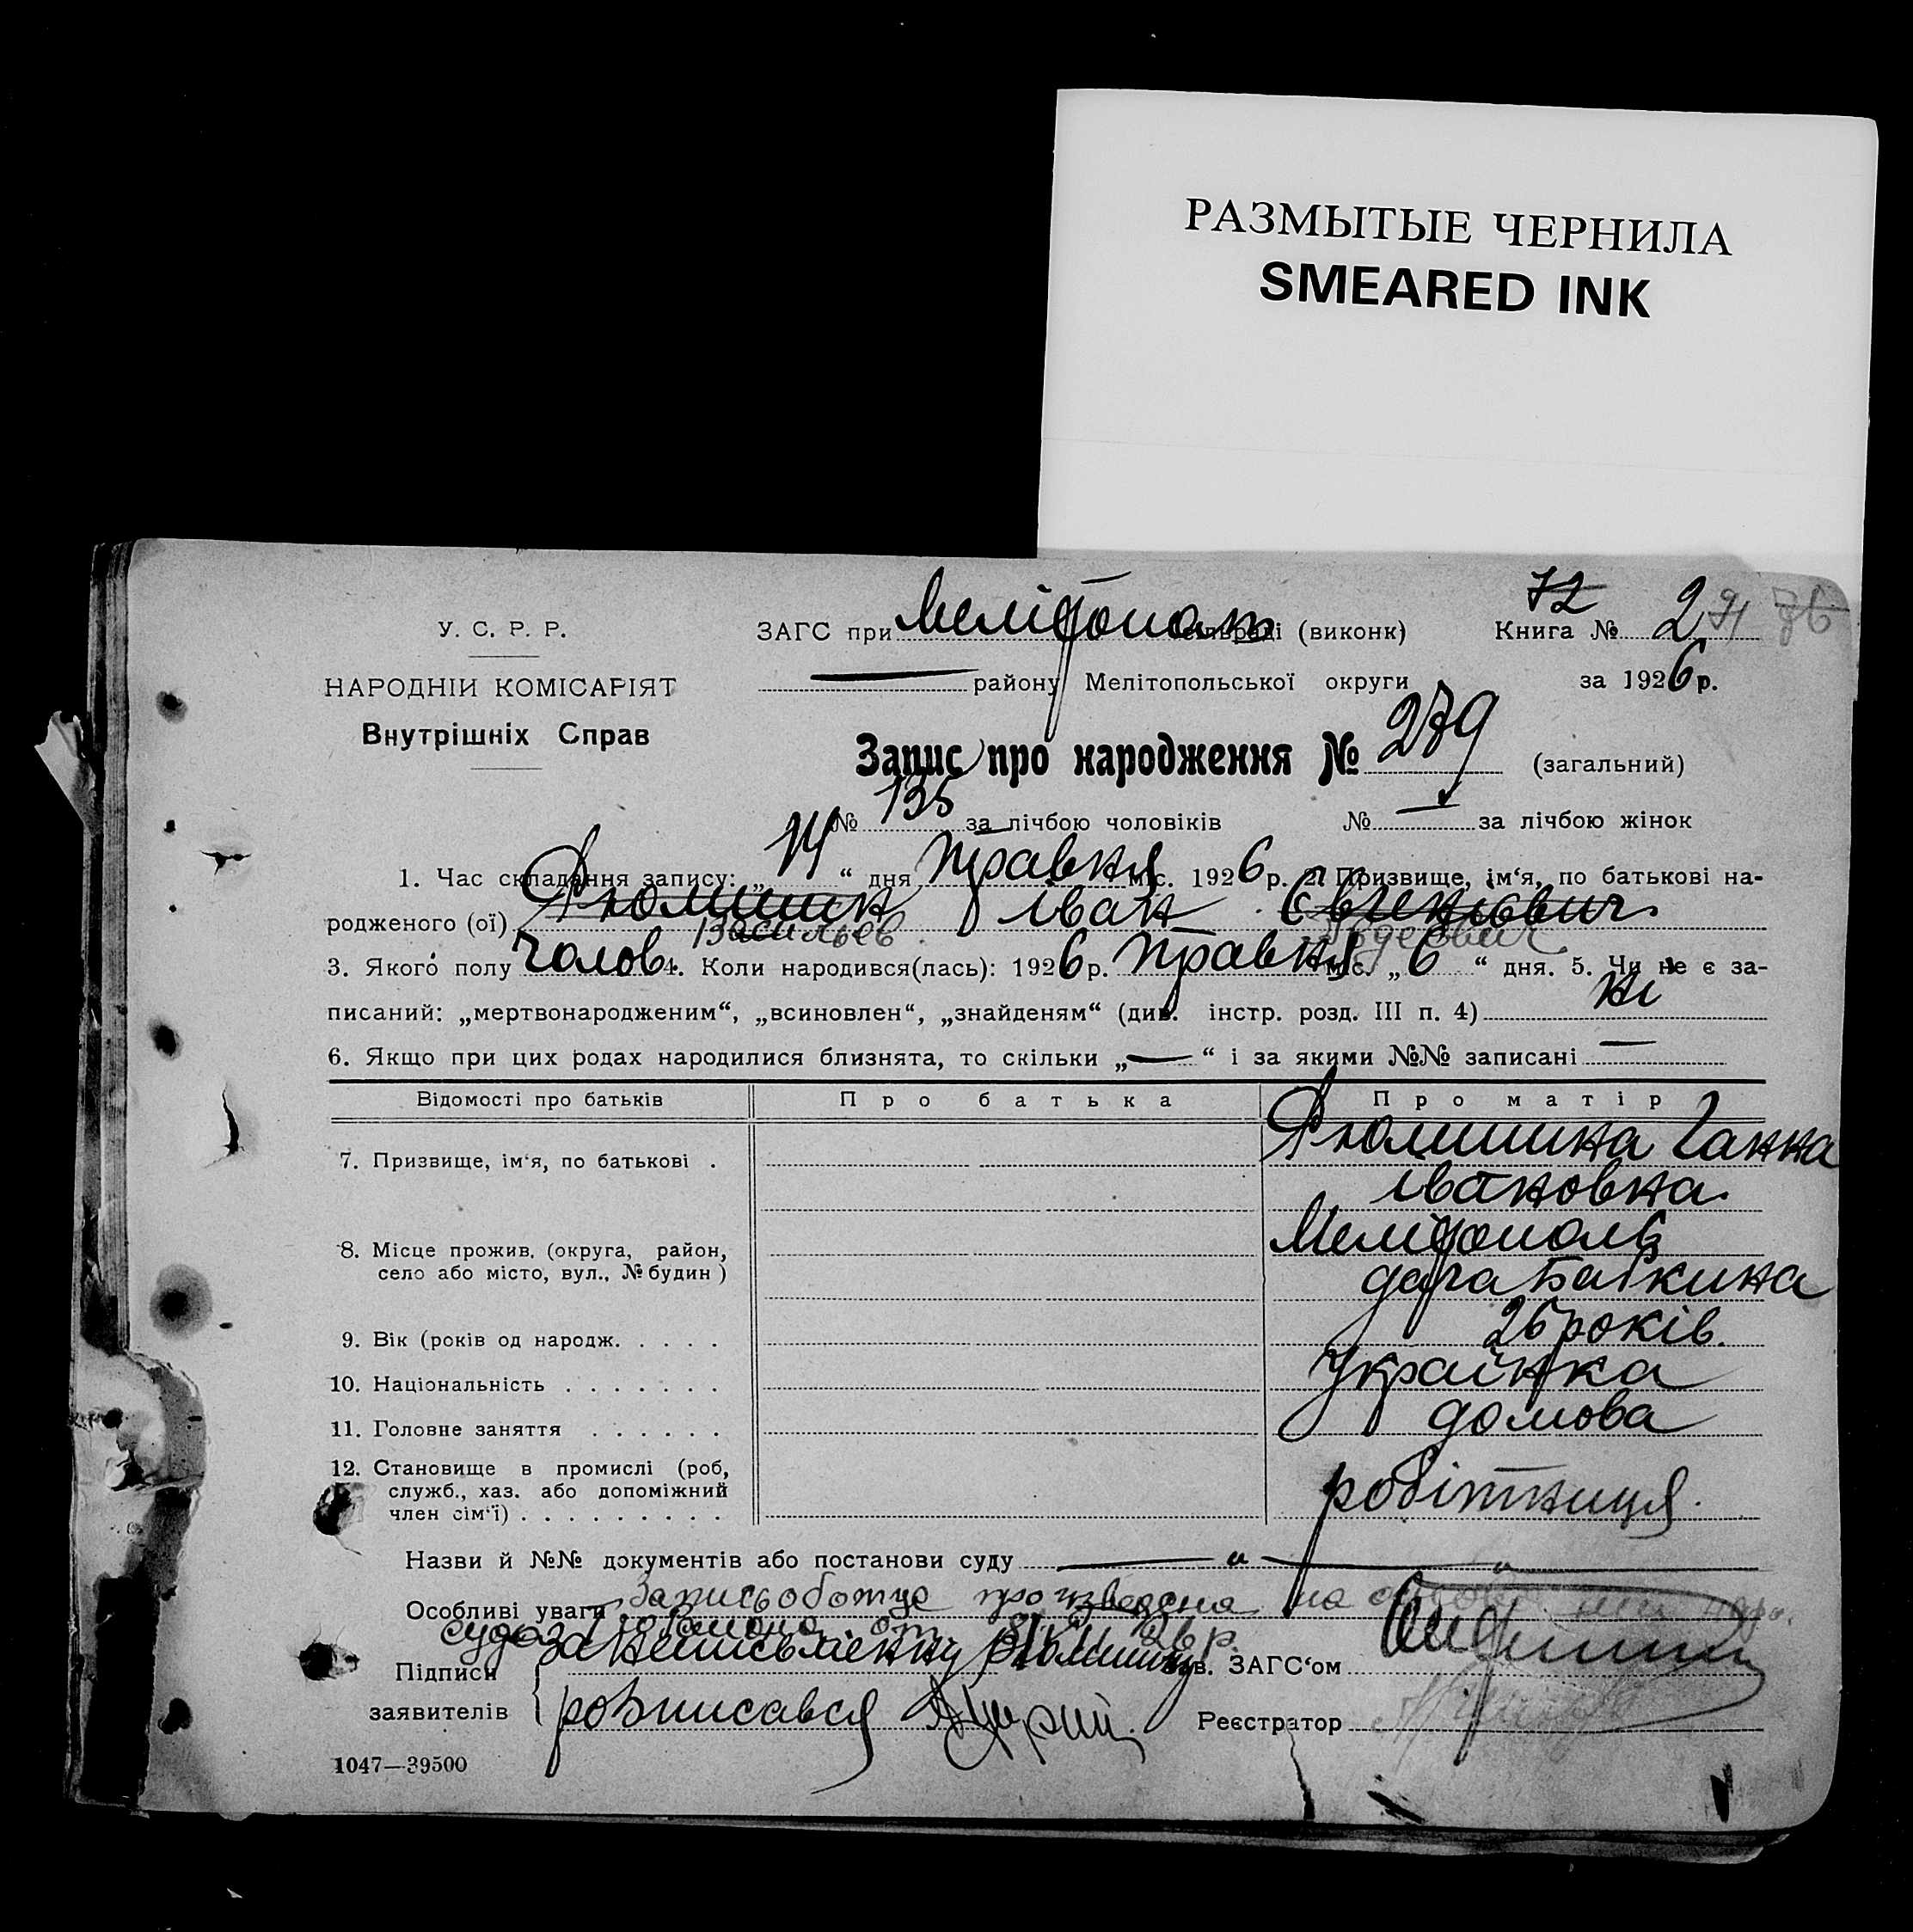 РАЗМЫТЫЕ ЧЕРНИЛА
SMEARED INK
72
У. С. Р. Р. ЗАГС при Мелітополі сільраді (виконк) Книга № 2
НАРОДНІЙ КОМІСАРІЯТ — району Мелітопольської округи за 1926 р.
Внутрішніх Справ
Запис про народження № 279 (загальний)
№ 135 за лічбою чоловіків № — за лічбою жінок
1. Час складання запису: „14“ дня травня міс. 1926 р. 2. Призвище, ім‘я, по батькові на-
родженого (ої) Іван
Васильев
3. Якого полу чолов 4. Коли народився(лась): 1926 р. травня міс. „6“ дня. 5. Чи не є за-
писаний: „мертвонародженим“, „всиновлен“, „знайденям“ (див. інстр. розд. III п. 4) ні
6. Якщо при цих родах народилися близнята, то скільки „—“ і за якими №№ записані —
Відомості про батьків Про батька Про матір
7. Призвище, ім‘я, по батькові . Ганна
Івановна
8. Місце прожив. (округа, район, Мелітополь
село або місто, вул., № будин) дача Бабкина
9. Вік (років од народж. . . . . 26 років.
10. Національність . . . . . . . Українка
11. Головне заняття . . . . . . домова
12. Становище в промислі (роб, робітниця.
служб., хаз. або допоміжний
член сім‘ї) . . . . . . . . .
Назви й №№ документів або постанови суду — „ —
Особливі уваги Запись об отце произведена на
суда
Підписи за неписьменну Зав. ЗАГС‘ом
заявителів розписався Реєстратор
1047—39500